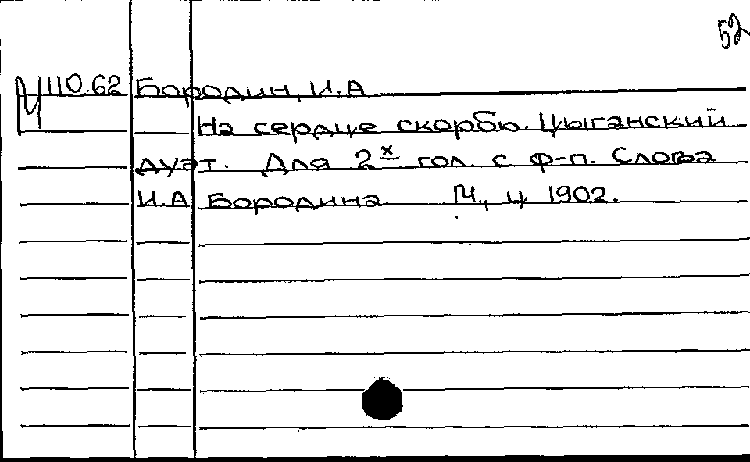 52
110.62 Бородин, И.А
На сердце скорбь. Цыганский
дуэт. Для 2х гол. с ф-п. Слова
И.А Бородина М, ц 1902.